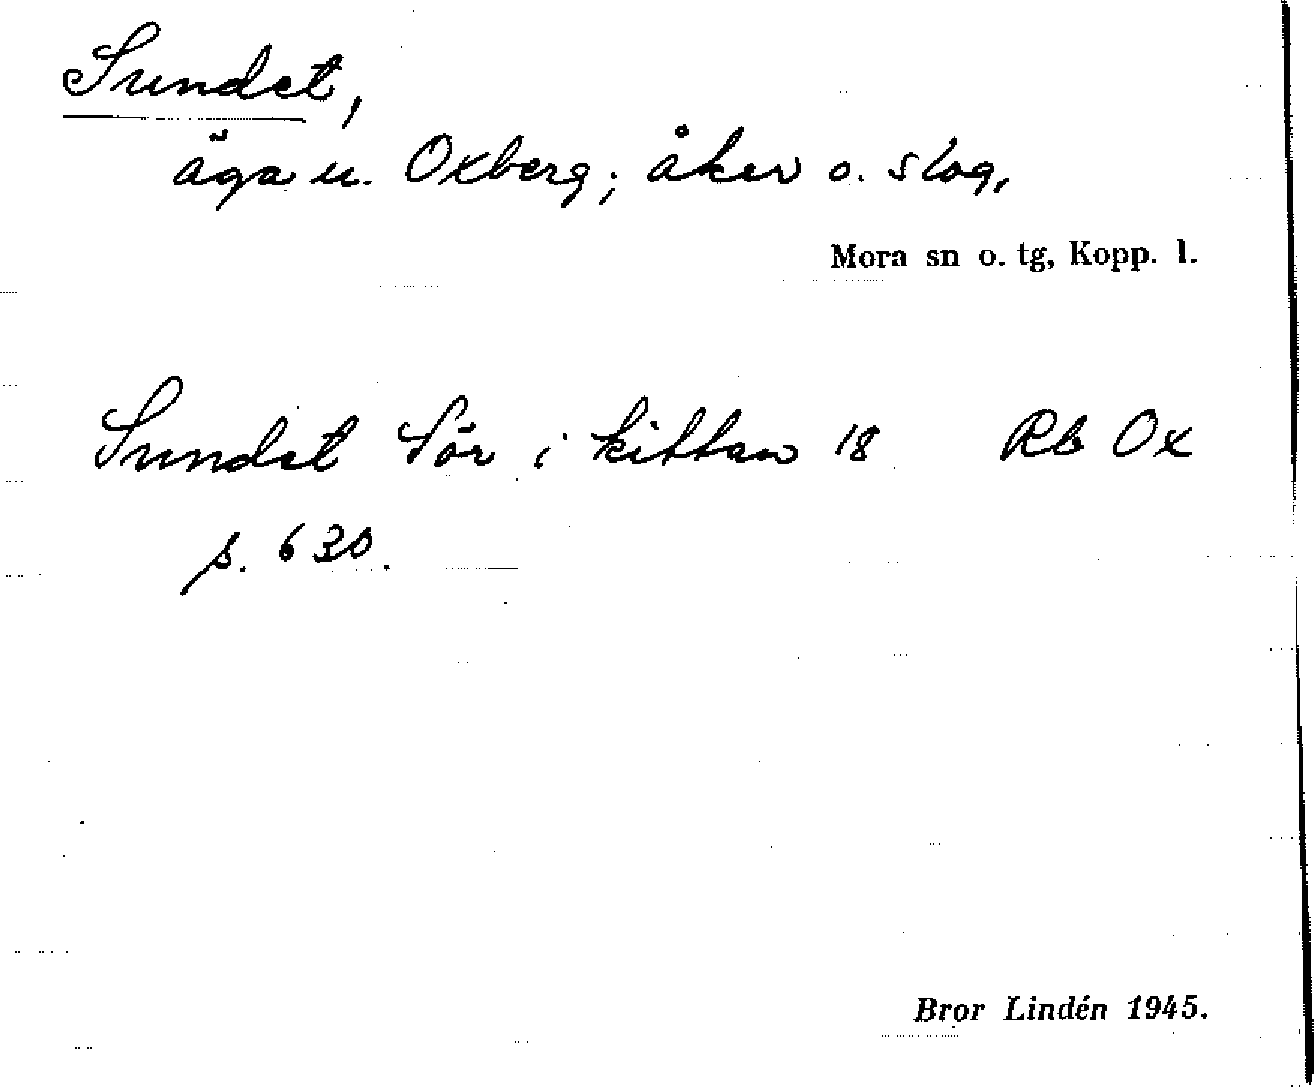 Sundet,
äga u. Oxberg; åker o. slog.
Mora sn o. tg, Kopp. l.
Sundet Sör i kittan 18 Rb Ox
p. 630.
Bror Lindén 1945.